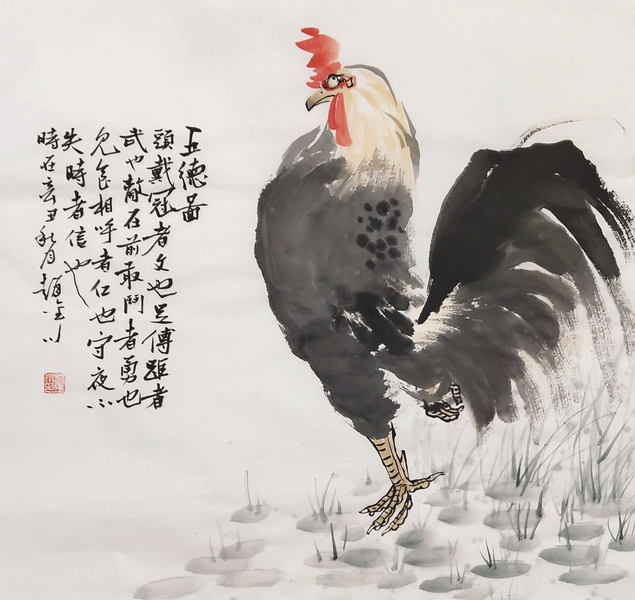 五德图
頭戴冠者文也足傅距者
武也敵在前敢鬥者勇也
見食相呼者仁也守夜不
失時者信也
時在辛丑秋月趙金川